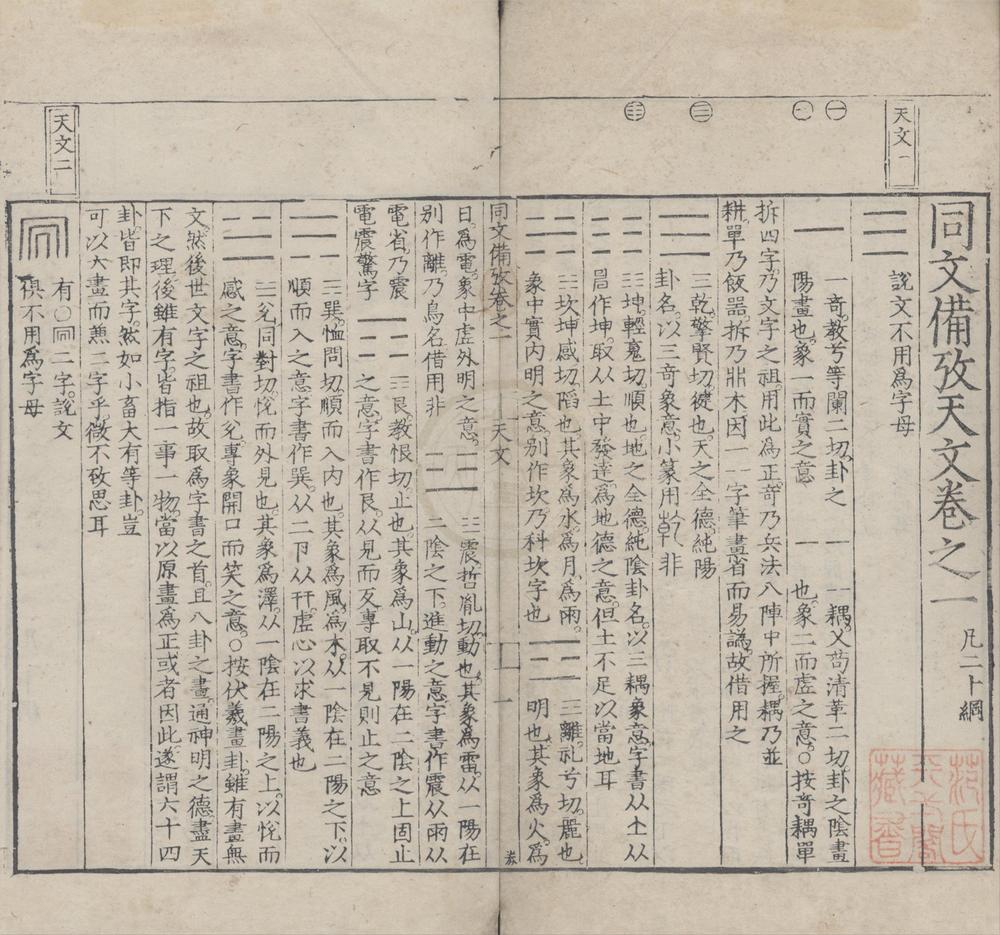 天文一
同文備攷天文卷之一　凡二十綱
說文不用爲字母
一奇教兮等闌二切卦之
陽畫也象一而實之意
耦又苟清革二切卦之陰畫
也象二而虛之意○按奇耦單
拆四字乃文字之祖用此為正奇乃兵法八陣中所握耦乃並
耕單乃飯器拆乃鼎木因一字筆畫省而易譌故借用之
三乾擎賢切徤也天之全德純陽
卦名以三奇象意小篆用乾非
三坤輕䰟切順也地之全德純陰卦名以三耦象意字書从土从
𦥔作坤取从土中發達爲地德之意但土不足以當地耳
三坎坤感切䧟也其象爲水爲月爲雨
象中實内明之意別作坎乃科坎字也
三離礼兮切麗也
明也其象爲火爲
同文備攷卷之一
天文
一
日爲電象中虛外明之意
別作離乃鳥名借用非
三震哲胤切動也其象爲雷从一陽在
二陰之下進動之意字書作震从雨从
電省乃震
電震驚字
三艮教恨切止也其象爲山从一陽在二陰之上固止
之意字書作艮从見而反專取不見則止之意
三巽恤問切順而入内也其象爲風爲木从一陰在二陽之下以
順而入之意字書作巽从二卪从幵虛心以求書義也
三兌同對切悅而外見也其象爲澤从一陰在二陽之上以悅而
感之意字書作兊專象開口而笑之意○按伏羲畫卦雖有畫無
文然後世文字之祖也故取爲字書之首且八卦之畫通神明之德盡天
下之理後雖有字皆指一事一物當以原畫爲正或者因此遂謂六十四
卦皆即其字然如小畜大有等卦豈
可以六畫而兼二字乎徵不攷思耳
有○二字說文
俱不用爲字母
天文二
范氏天一閣藏書